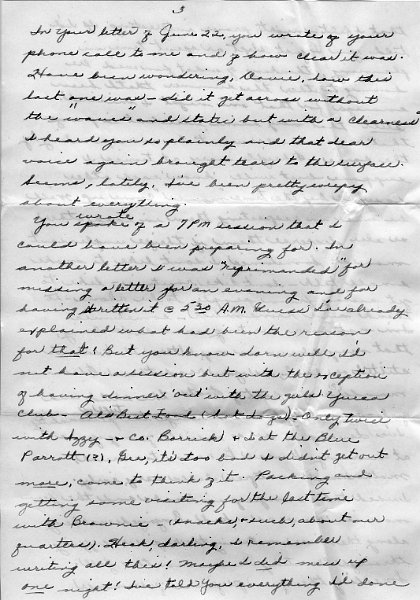 3
In Your letter of June 22, you wrote of your
phone call to me and of how clear it was.
Have been wondering, Davie, how this
last one was - did it get across without
the "waves" and static but with a clearness
I heard you so plainly and that dear
voice again brought tears to the surface.
Seems, lately, I've been pretty weepy
about everything.
You wrote spoke of a 7 PM session that I
could have been preparing for. In
another letter I was "reprimanded" for
missing a letter for an evening and for
having written it @ 5:30 A.M. Guess I've already
explained what had been the reason
for that! But you know darn well I'd
not have a session but with the exception
of having dinner out with the girls
Club - Only twice
with Izzy - & Co. Barrick & I at the Blue
Parrott (2). Gee, it's too bad I didn't get out
more, come to think of it. Packing and
getting some visiting for the last time
with Brownie - (snacks, & such, about our
quarters). Heck, darling, I remember
writing all this! Maybe I did mess up
one night! I've told you everything I'd done